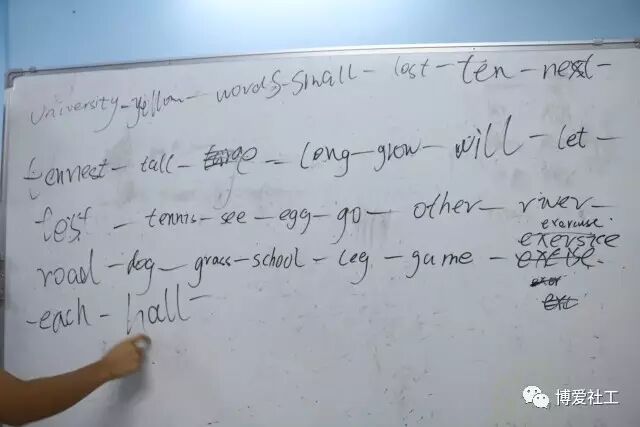 university - yellow - words - small - lost - ten - next -
tennest - tall - - long - grow - will - let -
test - tennis - see - egg - go - other - river -
exercise.
road - dog - grass - school - leg - game - exersice
- each - hall -
博爱社工